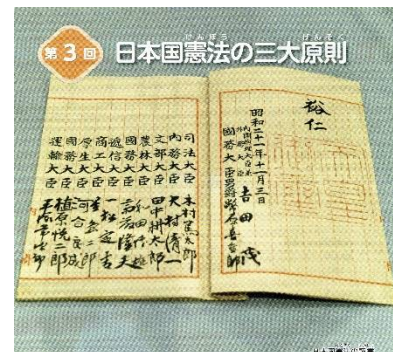 第3回
日本国憲法の三大原則
けんぽう
げんそく
裕仁
昭和二十一年十一月三日
内閣総理大臣兼
外務大臣 吉田茂
國務大臣 男爵 幣原喜重郎
司法大臣 木村篤太郎
内務大臣 大村清一
文部大臣 田中耕太郎
農林大臣 和田博雄
國務大臣 斎藤隆夫
逓信大臣 一松定吉
商工大臣 星島二郎
厚生大臣 河合良成
國務大臣 植原悦二郎
運輸大臣 平塚常次郎